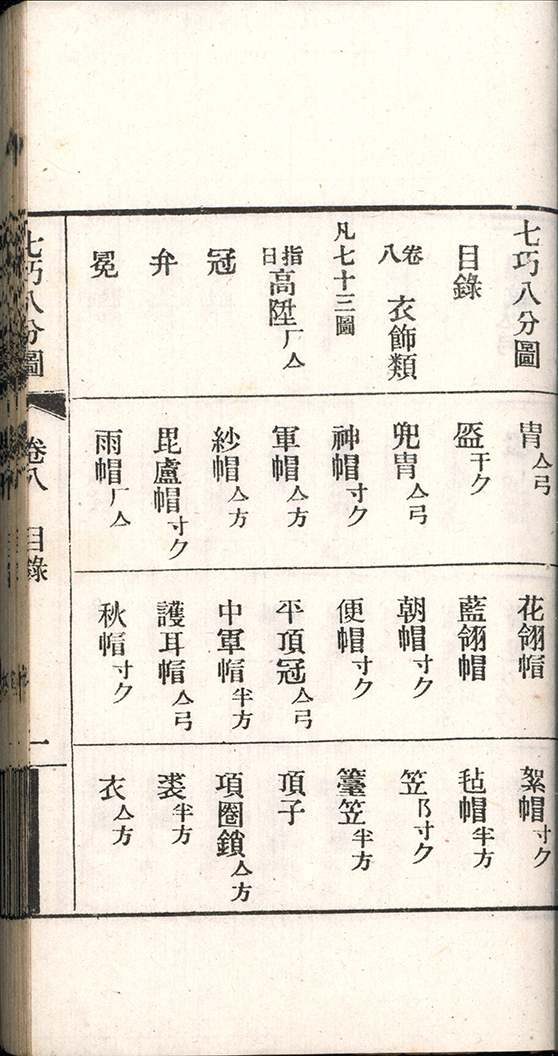 七巧八分圖
目錄
卷八 衣飾類
凡七十三圖
指日高陞 厂亼
冠
弁
冕
冑 亼弓
盔 干ク
兜冑 亼弓
神帽 寸ク
軍帽 亼方
紗帽 亼方
毘盧帽 寸ク
雨帽 厂亼
花翎帽
藍翎帽
朝帽 寸ク
便帽 寸ク
平頂冠 亼弓
中軍帽 半方
護耳帽 亼弓
秋帽 寸ク
絮帽 寸ク
毡帽 半方
笠 阝寸ク
籉笠 半方
頂子
項圈鎖 亼方
裘 半方
衣 亼方
七巧八分圖 卷八 目錄 一